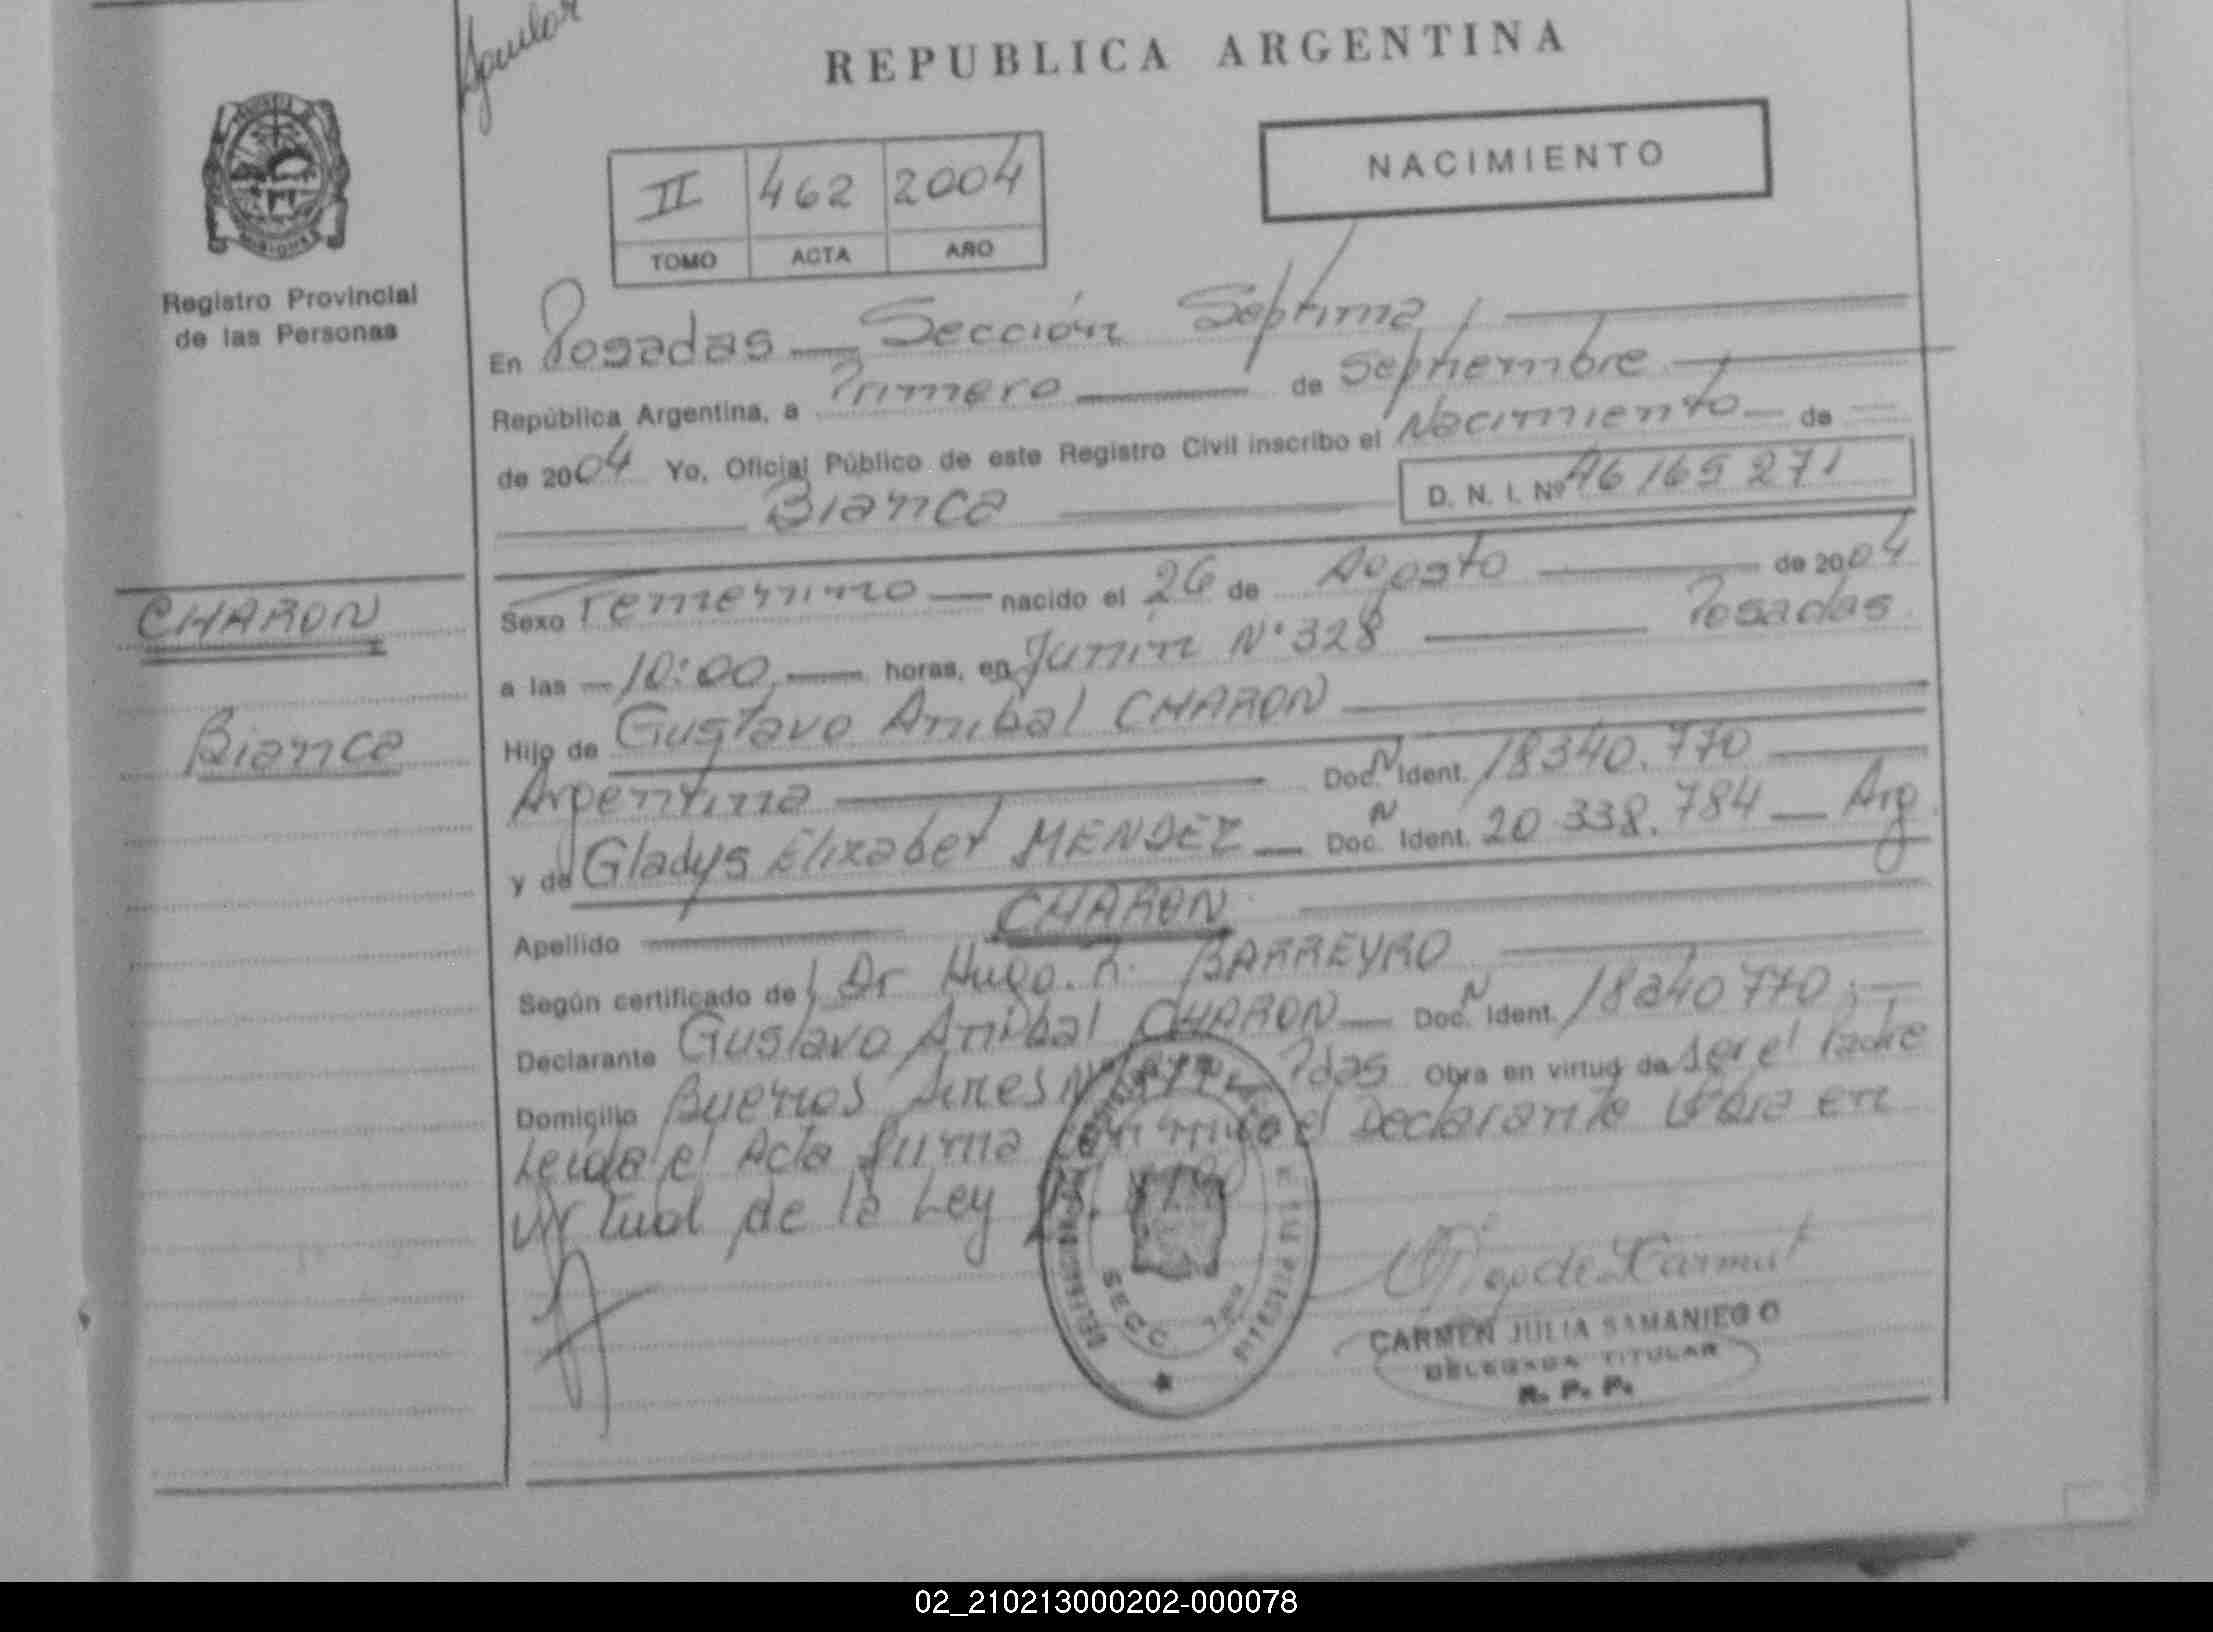 Aguilar
REPUBLICA ARGENTINA
NACIMIENTO
II 462 2004
TOMO ACTA AÑO
Registro Provincial
de las Personas
En Posadas — Sección Séptima
República Argentina, a Primero de Septiembre
de 2004 Yo, Oficial Público de este Registro Civil inscribo el Nacimiento de
Bianca D. N. I. Nº 46165271
CHARON
Bianca
Sexo Femenino nacido el 26 de Agosto de 2004
a las 10:00 horas, en Junín N° 328 Posadas
Hijo de Gustavo Anibal CHARON
Argentina Doc. N Ident. 18340.770
y de Gladys Elizabet MENDEZ Doc. N Ident. 20 338.784 — Arg
Apellido CHARON
Según certificado de Dr Hugo. R. BARREYRO
Declarante Gustavo Anibal CHARON Doc. N Ident. 18340770
Domicilio Buenos Aires Pdas Obra en virtud de ser el Padre
Leida el Acta firma conmigo el Declarante
virtud de la Ley
SECC
CARMEN JULIA SAMANIEGO
DELEGADA TITULAR
R. P. P.
02_210213000202-000078